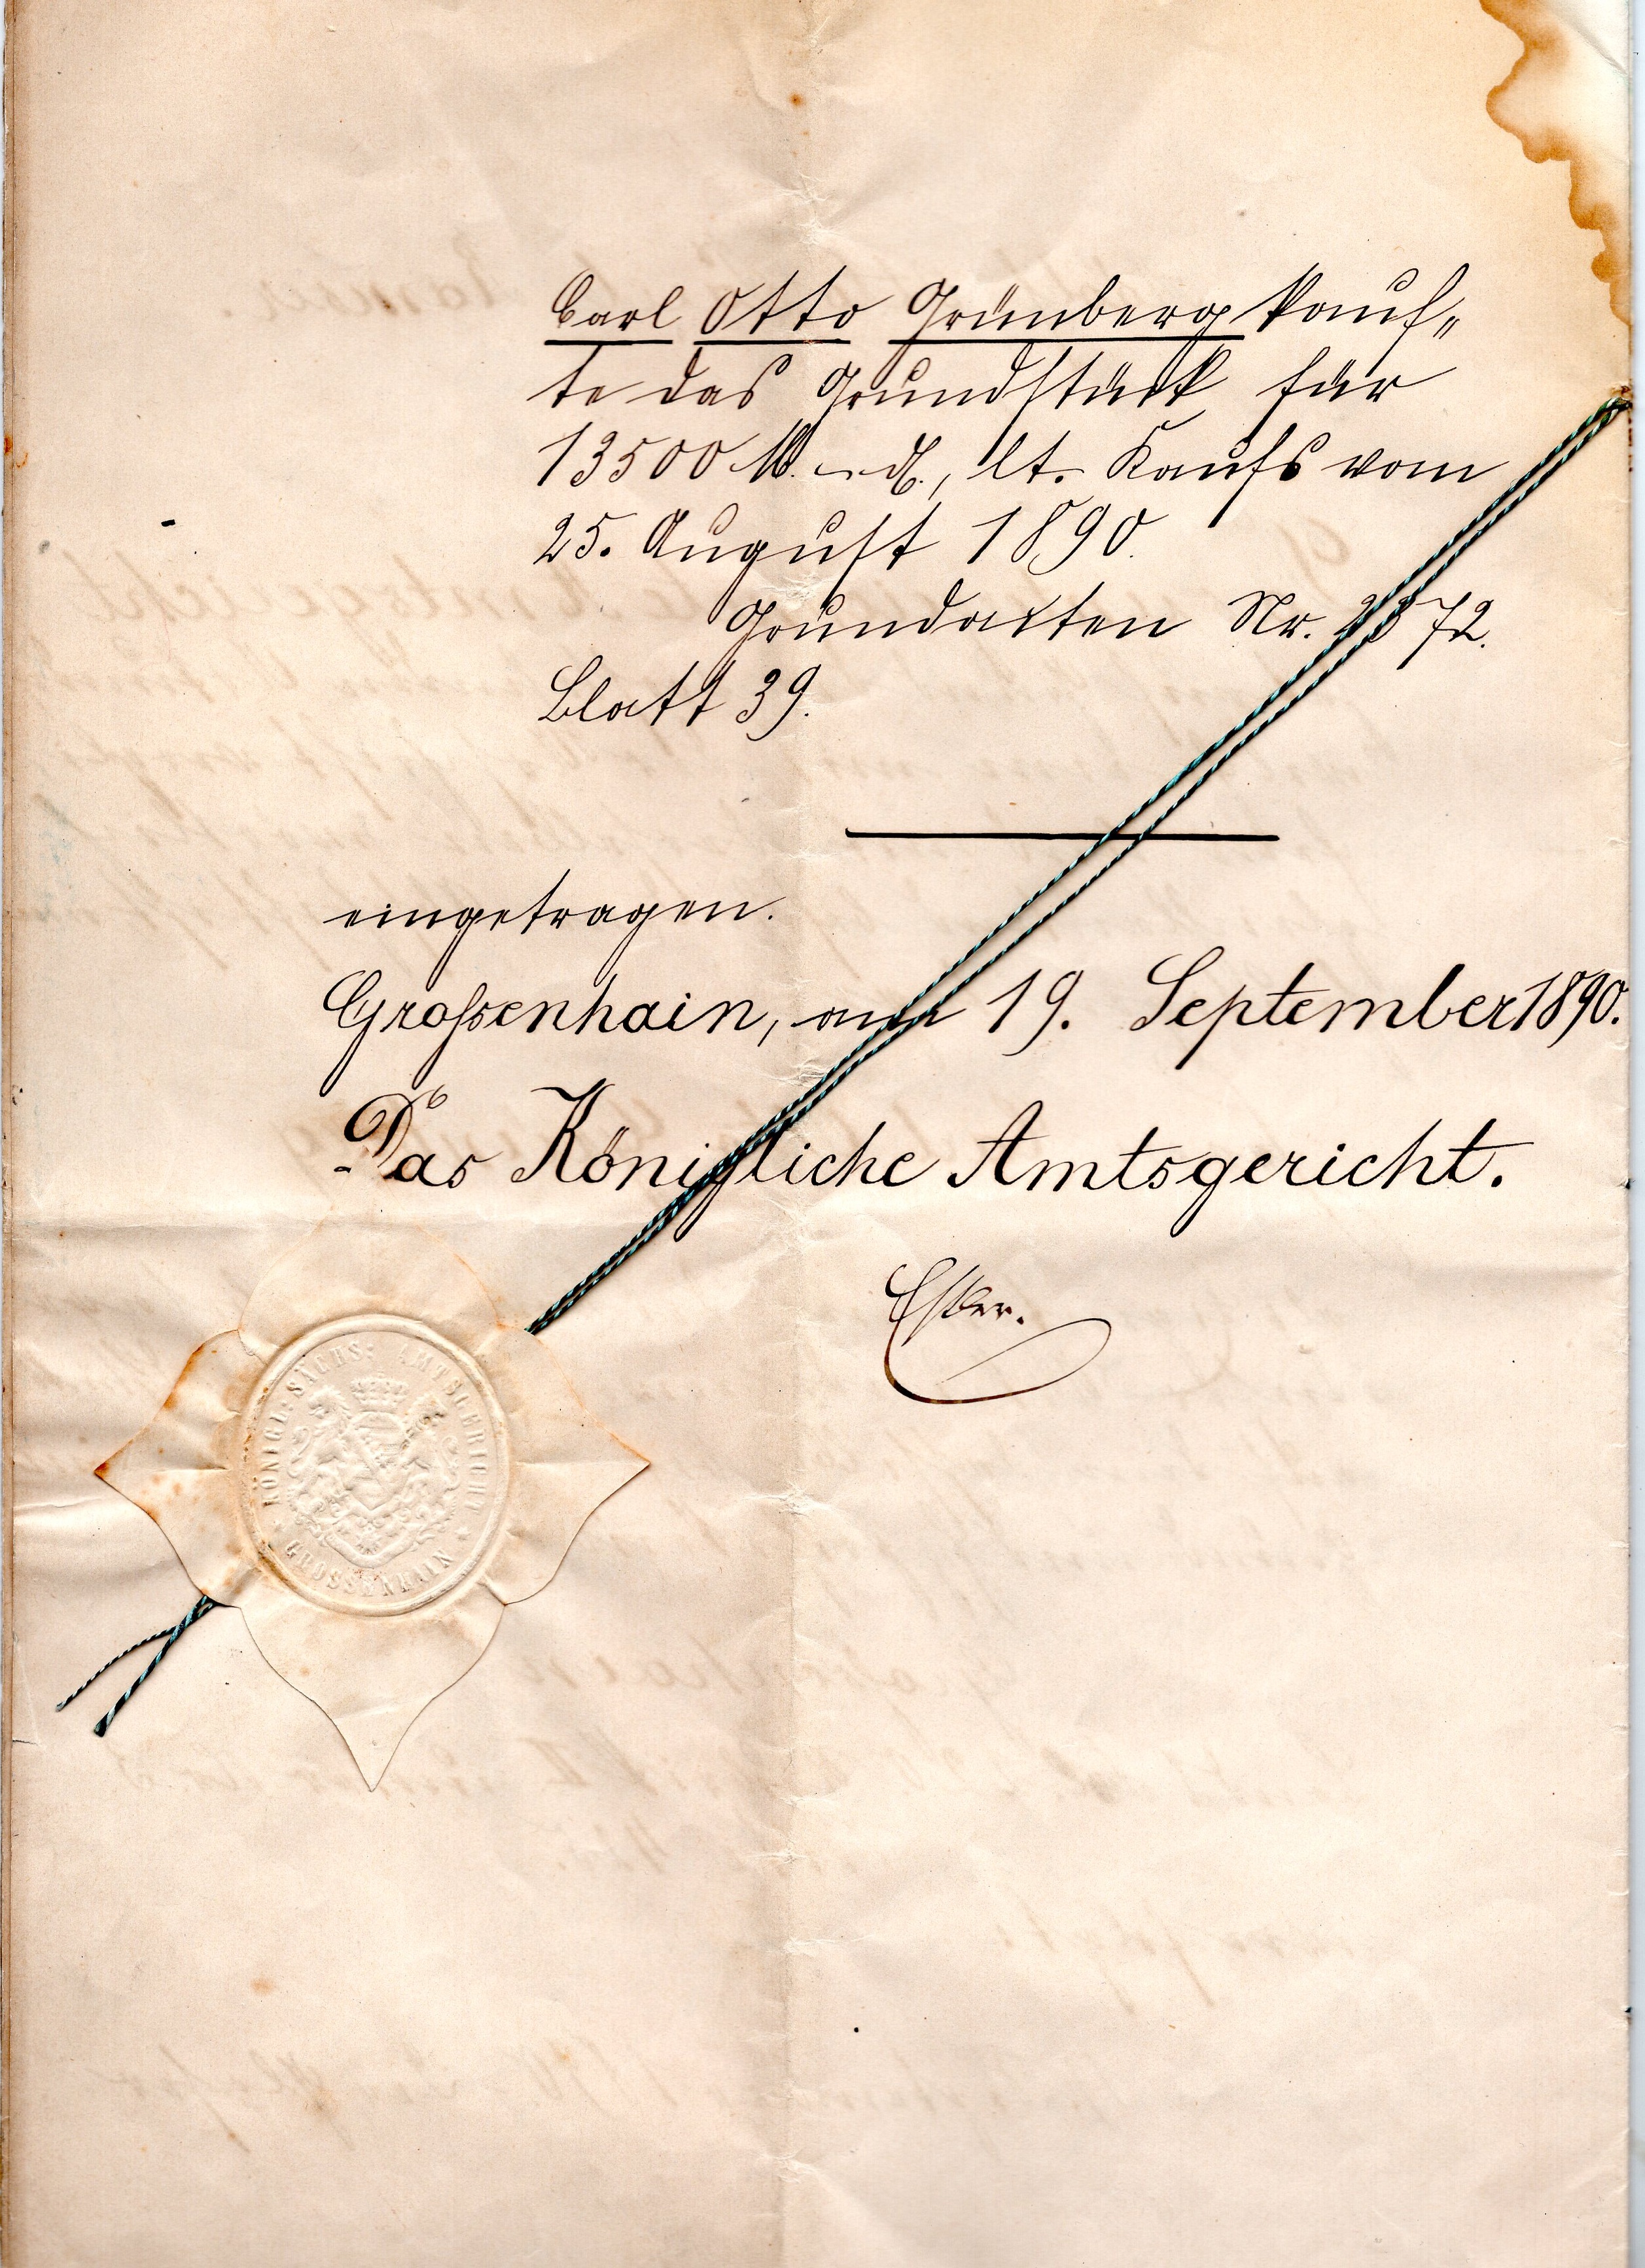 Carl Otto Grünberg kauf„
te das Grundstück für
13500 M. – d., lt. Kaufs vom
25. August 1890.
Grundakten Nr. 72.
Blatt 39.
eingetragen.
Großenhain, am 19. September 1890.
Das Königliche Amtsgericht.
KÖNIGL: SÄCHS: AMTSGERICHT
* GROSSENHAIN *